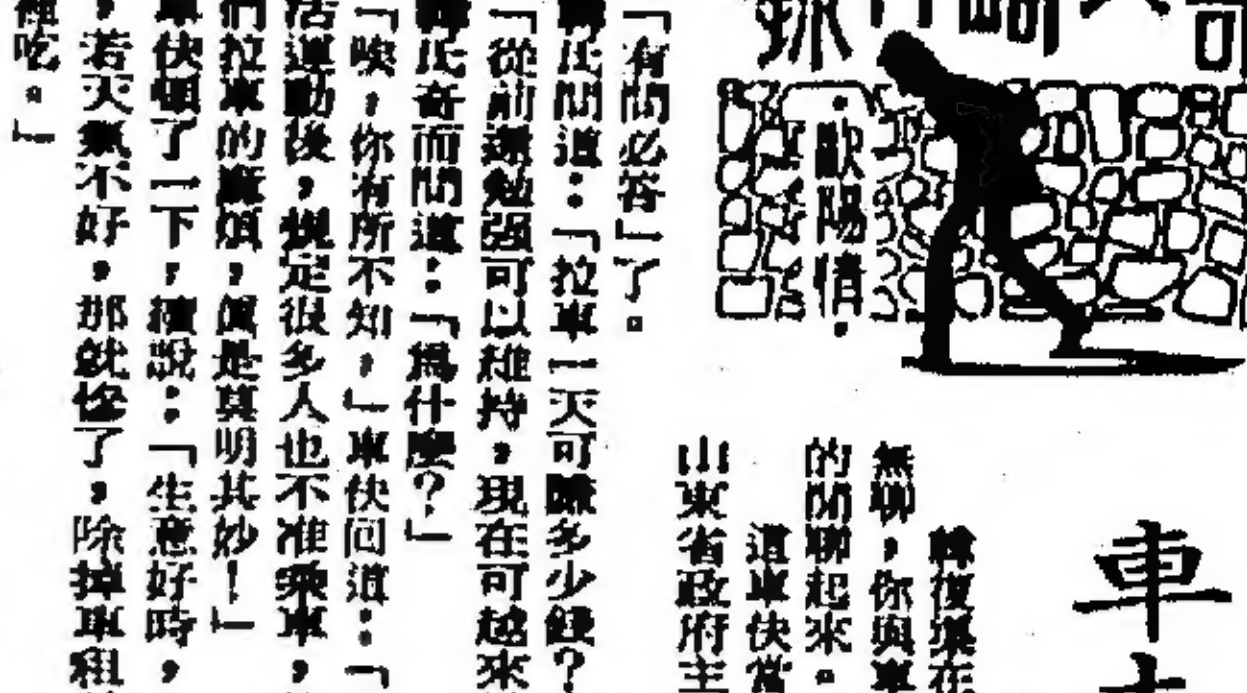 歐陽情
車
韓復榘在
無聊，你與車
的閒聊起來。
這車伕當
山東省政府主
「有問必答」了。
韓氏問道：「拉車一天可賺多少錢？
「從前還勉强可以維持，現在可越來
韓氏奇而問道：「爲什麽？」
「唉，你有所不知，」車伕回道：「
活運動後，規定很多人也不准乘車，
們拉車的麻煩，眞是莫明其妙！」
車伕頓了一下，續說：「生意好時，
，若天氣不好，那就慘了，除掉車租
裡吃。」